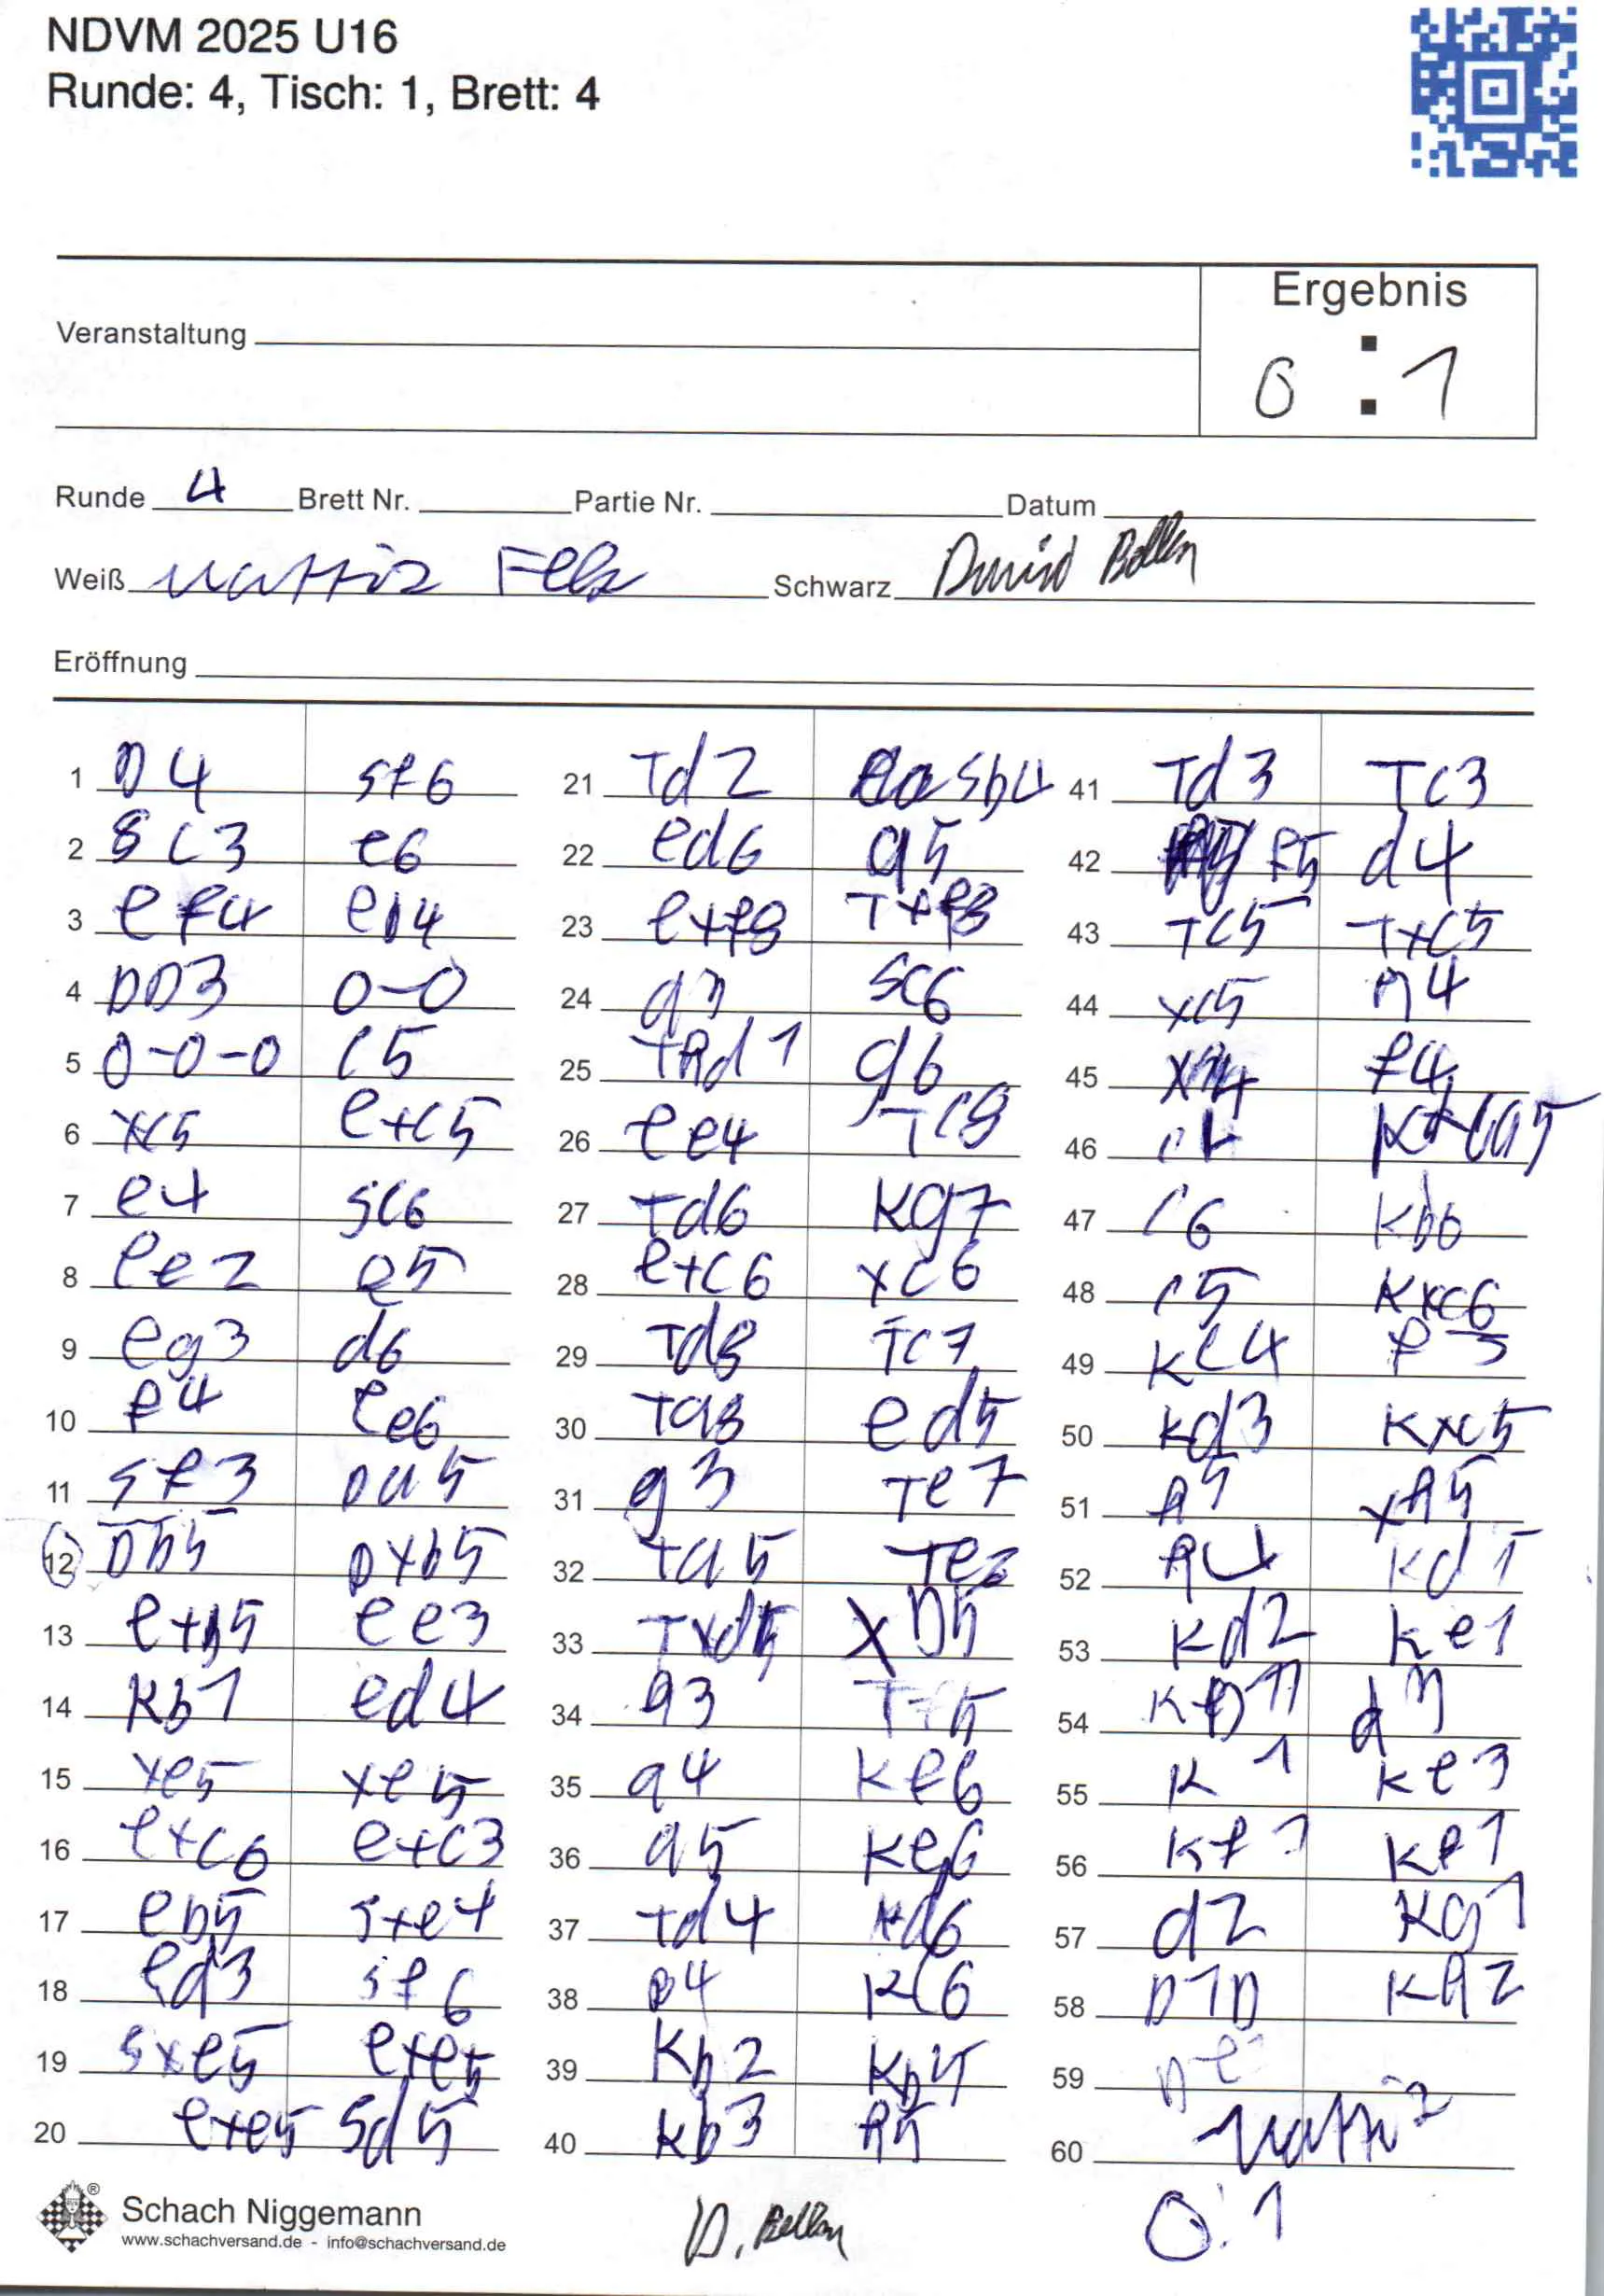 NDVM 2025 U16
Runde: 4, Tisch: 1, Brett: 4
Ergebnis
0 : 1
Veranstaltung
Runde 4 Brett Nr. Partie Nr. Datum
Weiß Schwarz David
Eröffnung
1 D4 Sf6
2 Sc3 e6
3 ef4 eb4
4 DD3 0-0
5 0-0-0 c5
6 xc5 exc5
7 e4 Sc6
8 ee2 e5
9 eg3 d6
10 f4 ee6
11 Sf3 Da5
12 Db5 Dxb5
13 exb5 ee3
14 Kb1 ed4
15 xe5 xe5
16 exc6 exc3
17 eb5 Sxe4
18 ed3 Sf6
19 Sxe5 exe5
20 exe5 Sd5
21 Td2 Sb4
22 ed6 a5
23 exf8 Txf8
24 a3 Sc6
25 Thd1 g6
26 ee4 Tc8
27 Td6 Kg7
28 exc6 xc6
29 Td8 Tc7
30 Ta8 ed5
31 g3 Te7
32 Ta5 Te2
33 Txd5 xD5
34 h3
35 a4 Kf6
36 a5 Ke6
37 Td4 Kd6
38 b4 Kc6
39 Kb2 Kb5
40 Kb3 h5
41 Td3 Tc3
42 f5 d4
43 Tc5 Txc5
44 xc5 g4
45 f4
46
47 c6 Kb6
48 c5 Kxc6
49 Kc4 f3
50 Kd3 Kxc5
51 g5 xg5
52 h4 Kd5
53 Kd2 Ke1
54
55 K 1 Ke3
56 Kf1
57 d2 Kg1
58 D1D Kh2
59
60
0:1
Schach Niggemann
®
www.schachversand.de - info@schachversand.de